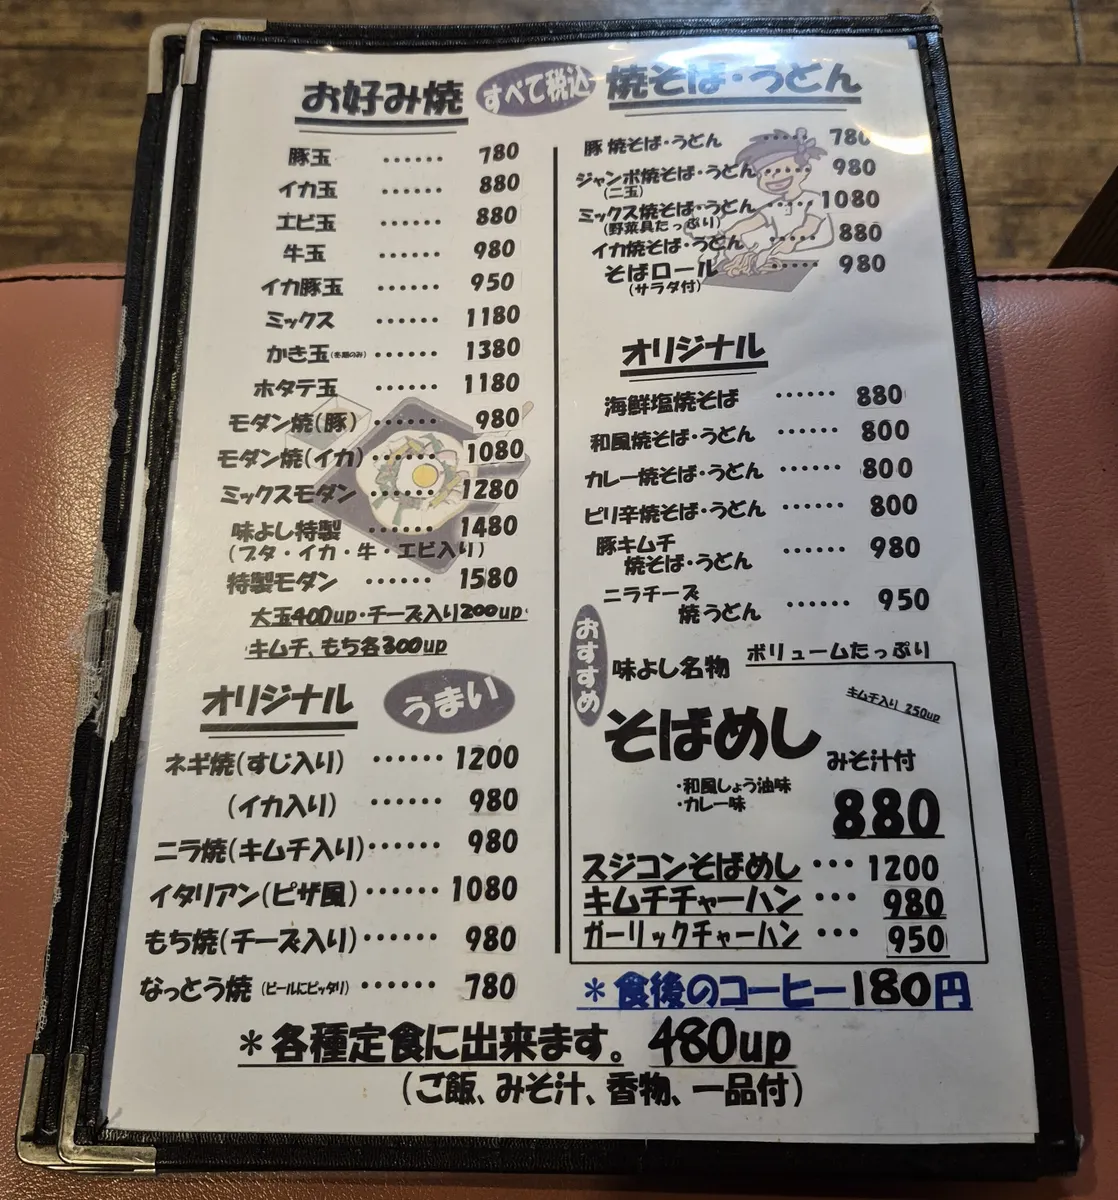 お好み焼
すべて税込
豚玉 ・・・・・・ 780
イカ玉 ・・・・・・ 880
エビ玉 ・・・・・・ 880
牛玉 ・・・・・・ 980
イカ豚玉 ・・・・・・ 950
ミックス ・・・・・・ 1180
かき玉(冬期のみ) ・・・・・・ 1380
ホタテ玉 ・・・・・・ 1180
モダン焼(豚) ・・・・・・ 980
モダン焼(イカ) ・・・・・・ 1080
ミックスモダン ・・・・・・ 1280
味よし特製 ・・・・・・ 1480
(ブタ・イカ・牛・エビ入り)
特製モダン ・・・・・・ 1580
大玉400up・チーズ入り200up
キムチ、もち各300up
オリジナル
うまい
ネギ焼(すじ入り) ・・・・・・ 1200
(イカ入り) ・・・・・・ 980
ニラ焼(キムチ入り)・・・・・・ 980
イタリアン(ピザ風)・・・・・・ 1080
もち焼(チーズ入り)・・・・・・ 980
なっとう焼(ビールにピッタリ) ・・・・・・ 780
焼そば・うどん
豚焼そば・うどん ・・・・・ 780
ジャンボ焼そば・うどん ・・・・・ 980
(二玉)
ミックス焼そば・うどん ・・・・・ 1080
(野菜具たっぷり)
イカ焼そば・うどん ・・・・・ 880
そばロール ・・・・・ 980
(サラダ付)
オリジナル
海鮮塩焼そば ・・・・・・ 880
和風焼そば・うどん ・・・・・・ 800
カレー焼そば・うどん ・・・・・・ 800
ピリ辛焼そば・うどん ・・・・・・ 800
豚キムチ
焼そば・うどん ・・・・・・ 980
ニラチーズ
焼うどん ・・・・・・ 950
おすすめ
味よし名物 ボリュームたっぷり
キムチ入り 250up
そばめし みそ汁付
・和風しょう油味
・カレー味
880
スジコンそばめし ・・・ 1200
キムチチャーハン ・・・ 980
ガーリックチャーハン ・・・ 950
＊食後のコーヒー180円
＊各種定食に出来ます。480up
(ご飯、みそ汁、香物、一品付)